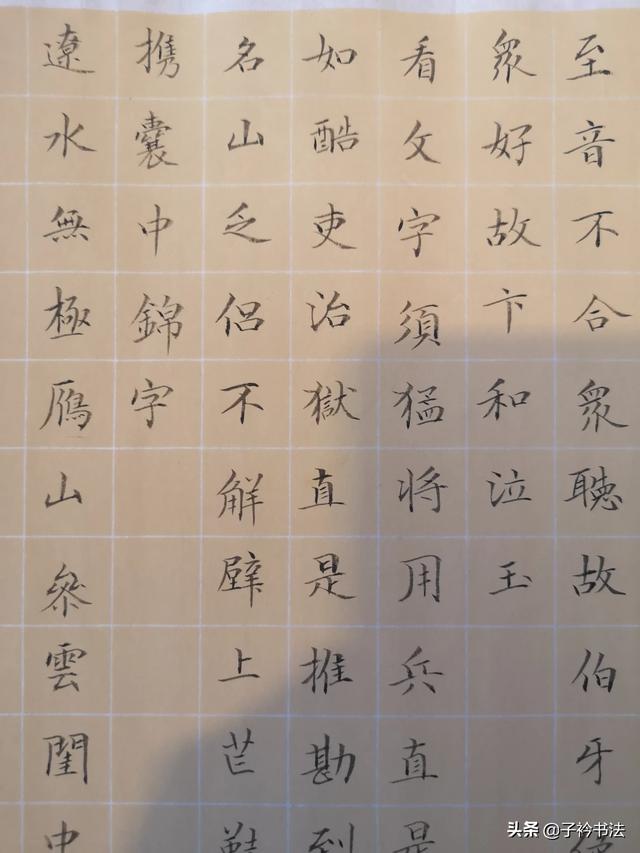 至音不合衆聽故伯牙
衆好故卞和泣玉
看文字須猛将用兵直是
如酷吏治獄直是推勘到
名山乏侶不解壁上芒鞋
携囊中錦字
遼水無極鴈山叅雲閨中
头条@子衿书法